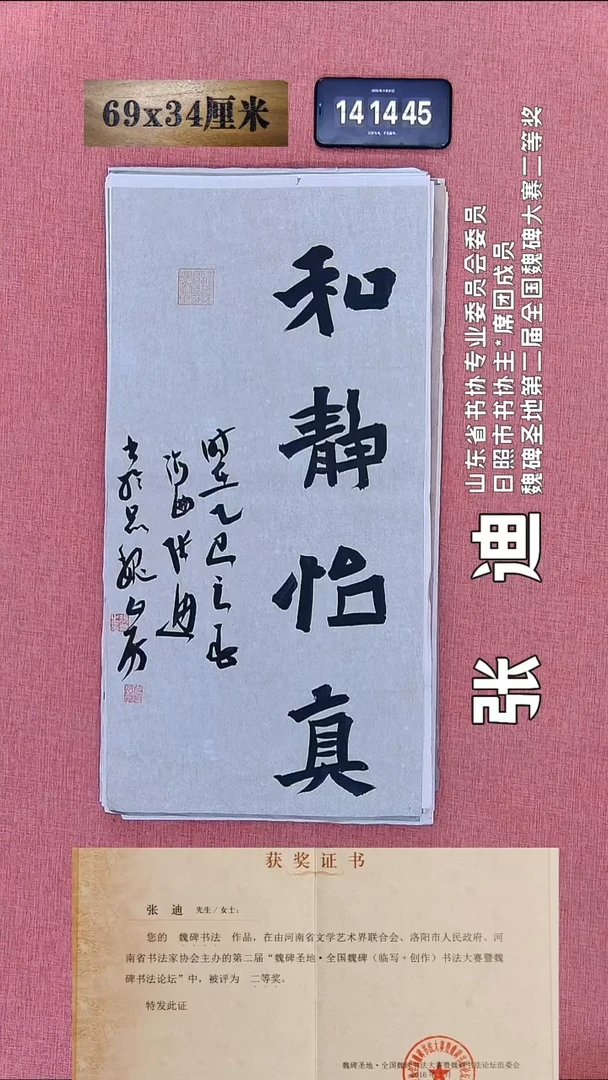 69x34厘米
14 14 45
和静怡真
时在乙巳之春
海曲张迪
书于思魏山房
山东省书协专业委员会委员
日照市书协主*席团成员
魏碑圣地第二届全国魏碑大赛二等奖
张 迪
获奖证书
张 迪 先生/女士：
您的 魏碑书法 作品，在由河南省文学艺术界联合会、洛阳市人民政府、河
南省书法家协会主办的第二届“魏碑圣地·全国魏碑（临写+创作）书法大赛暨魏
碑书法论坛”中，被评为 二等奖。
特发此证
魏碑圣地·全国魏碑书法大赛暨魏碑书法论坛组委会